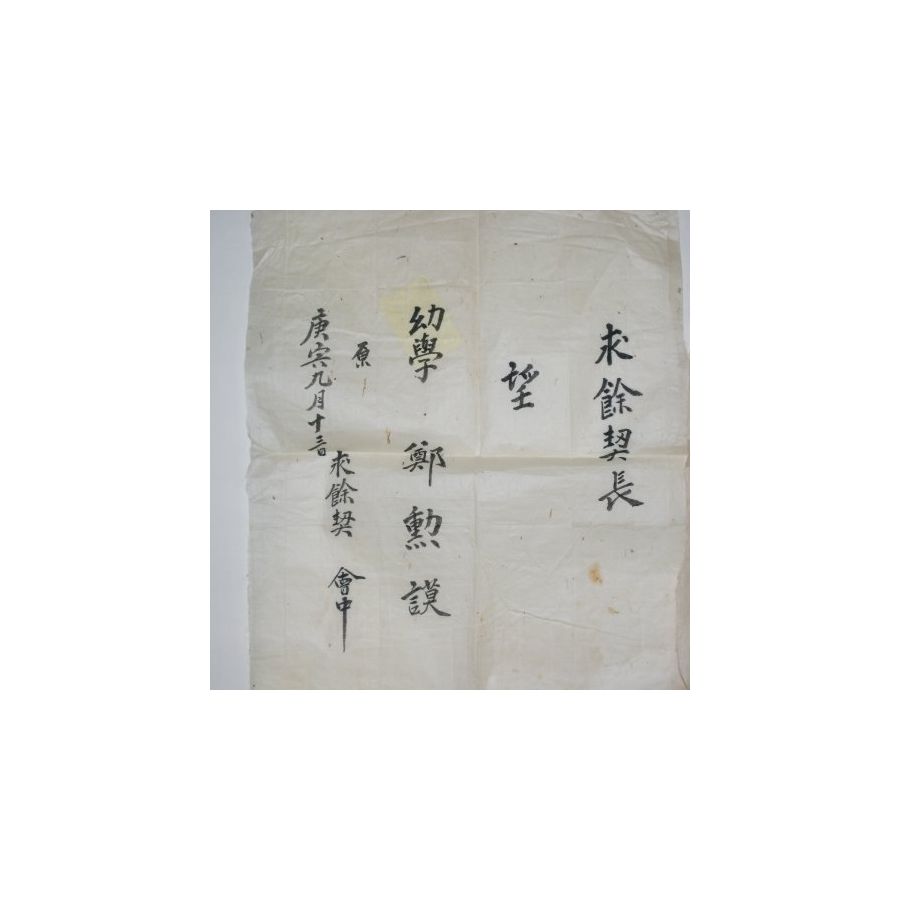 求餘契長
望
幼學 鄭勳謨
原
庚寅九月十三日
求餘契 會中